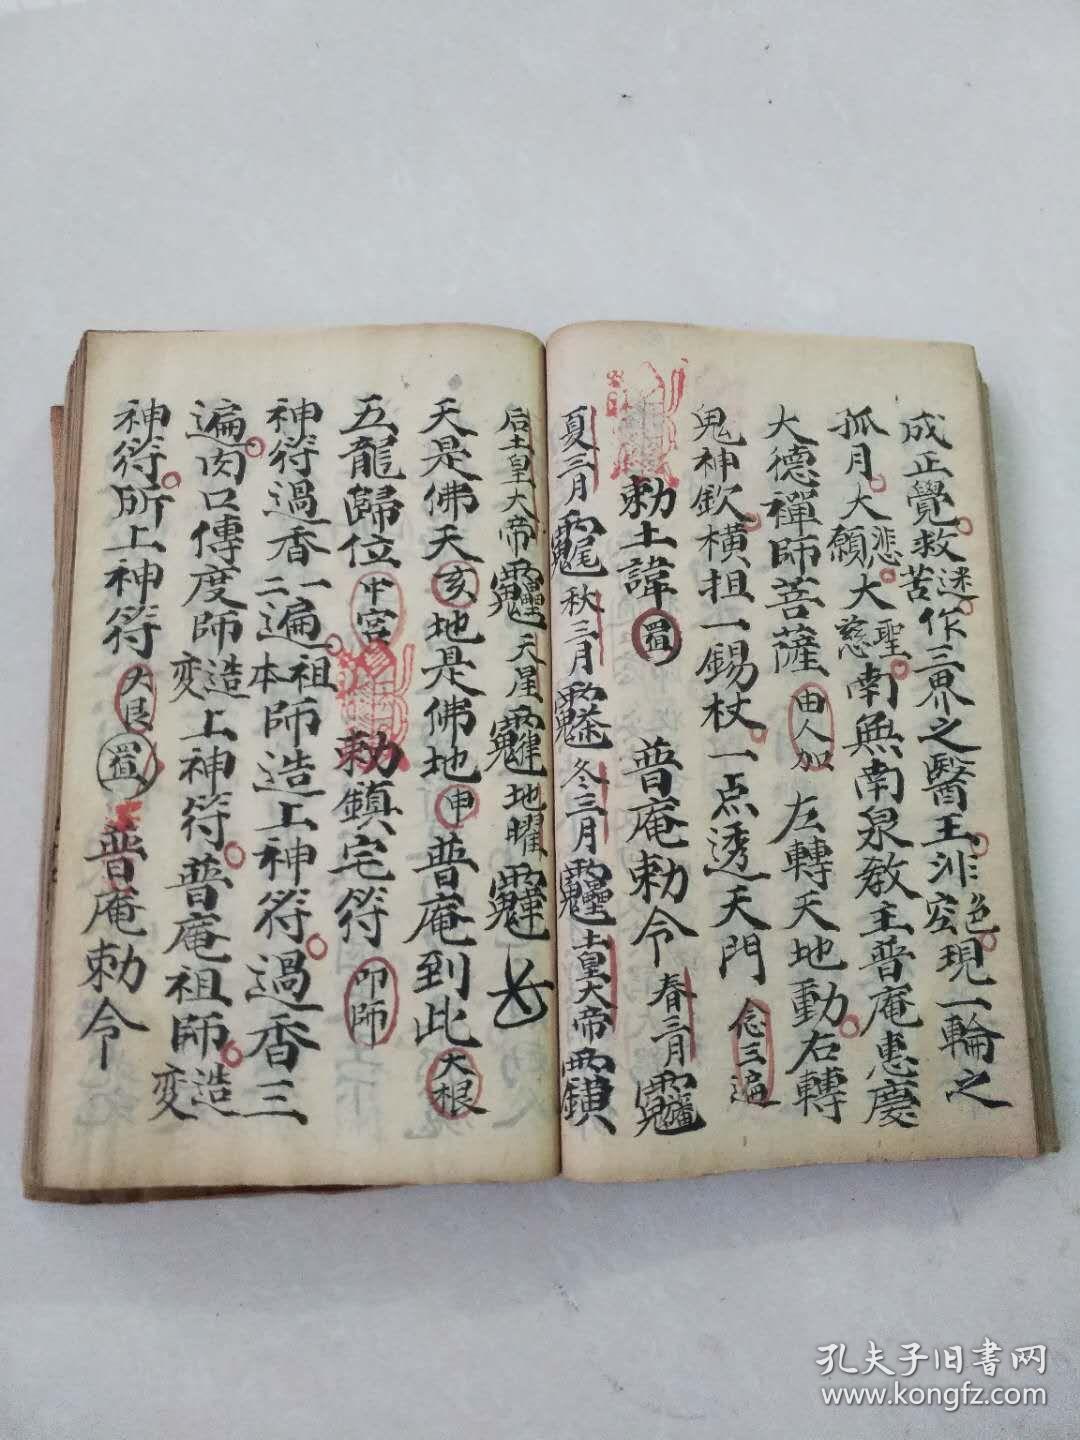 成正覺救迷苦作三界之醫王非色現一輪之
孤月大悲大願大聖大慈南無南泉教主普庵惠慶
大德禪師菩薩 由人加 左轉天地動右轉
鬼神欽橫担一錫杖一点透天門 念三遍
勅土諱 普庵勅令 春三月
夏三月 秋三月 冬三月 土皇大帝
后土皇大帝 天星 地曜
天是佛天亥地是佛地申普庵到此 大根
五龍歸位 中宮 勅鎮宅符 叩師
神符過香一二遍祖本師造上神符過香三
遍肉口傳度師造变上神符普庵祖師造变
神符所上神符 大艮 普庵勅令
孔夫子旧書网
www.kongfz.com